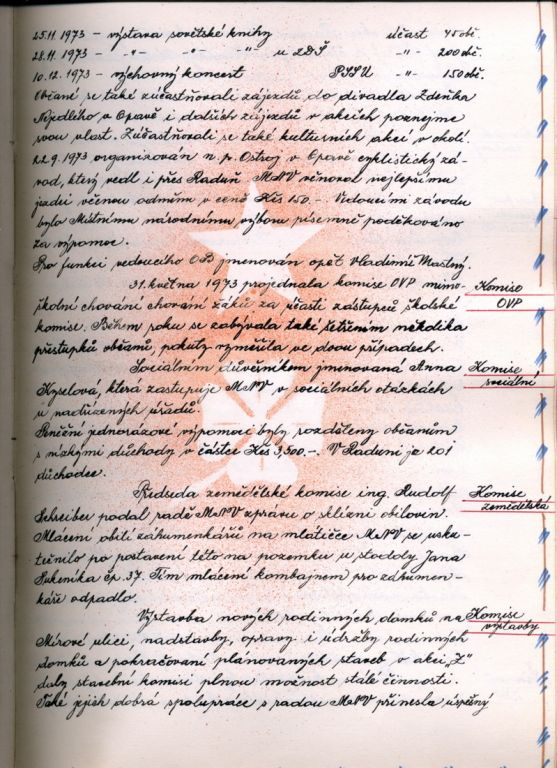 25.11 1973 - výstava sovětské knihy účast 45 obč.
28.11 1973 - -"- -"- -"- u ZDŠ -"- 200 obč.
10.12. 1973 - výchovný koncert PSSU -"- 150 obč.
Občané se také zúčastňovali zájezdů do divadla Zdeňka
Nejedlého v Opavě i dalších zájezdů v akcích poznejme
svou vlast. Zúčastňovali se také kulturních akcí v okolí.
22.9. 1973 organizován n.p. Ostroj v Opavě cyklistický zá-
vod, který vedl i přes Raduň MNV věnoval nejlepšímu
jezdci věcnou odměnu v ceně Kčs 150.-. Vedoucími závodu
bylo Místnímu národnímu výboru písemně poděkováno
za výpomoc.
Pro funkci vedoucího OB jmenován opět Vladimír Mastný.
31. května 1973 projednala komise OVP mimo-
Komise
OVP
školní chování chování žáků za účasti zástupců školské
komise. Během roku se zabývala také šetřením několika
přestupků občanů, pokuty vyměřila ve dvou případech.
Sociálním důvěrníkem jmenovaná Anna
Komise
sociální
Kyselová, která zastupuje MNV v sociálních otázkách
u nadřízených úřadů.
Peněžní jednorázové výpomoci byly rozděleny občanům
s nízkými důchody v částce Kčs 3,500.-. V Raduni je 201
důchodce.
Předseda zemědělské komise ing. Rudolf
Komise
zemědělská
Schreiber podal radě MNV zprávu o sklizni obilovin.
Mlácení obilí záhumenkářů na mlátičce MNV se usku-
tečnilo po postavení této na pozemku u stodoly Jana
Sukeníka čp. 37. Tím mlácení kombajnem pro záhumen-
káře odpadlo.
Výstavba nových rodinných domků na
Komise
výstavby
Mírové ulici, nadstavby, opravy i údržby rodinných
domků a pokračování plánovaných staveb v akci „Z"
daly stavební komisi plnou možnost stálé činnosti.
Také jejich dobrá spolupráce s radou MNV přinesla úspěšný